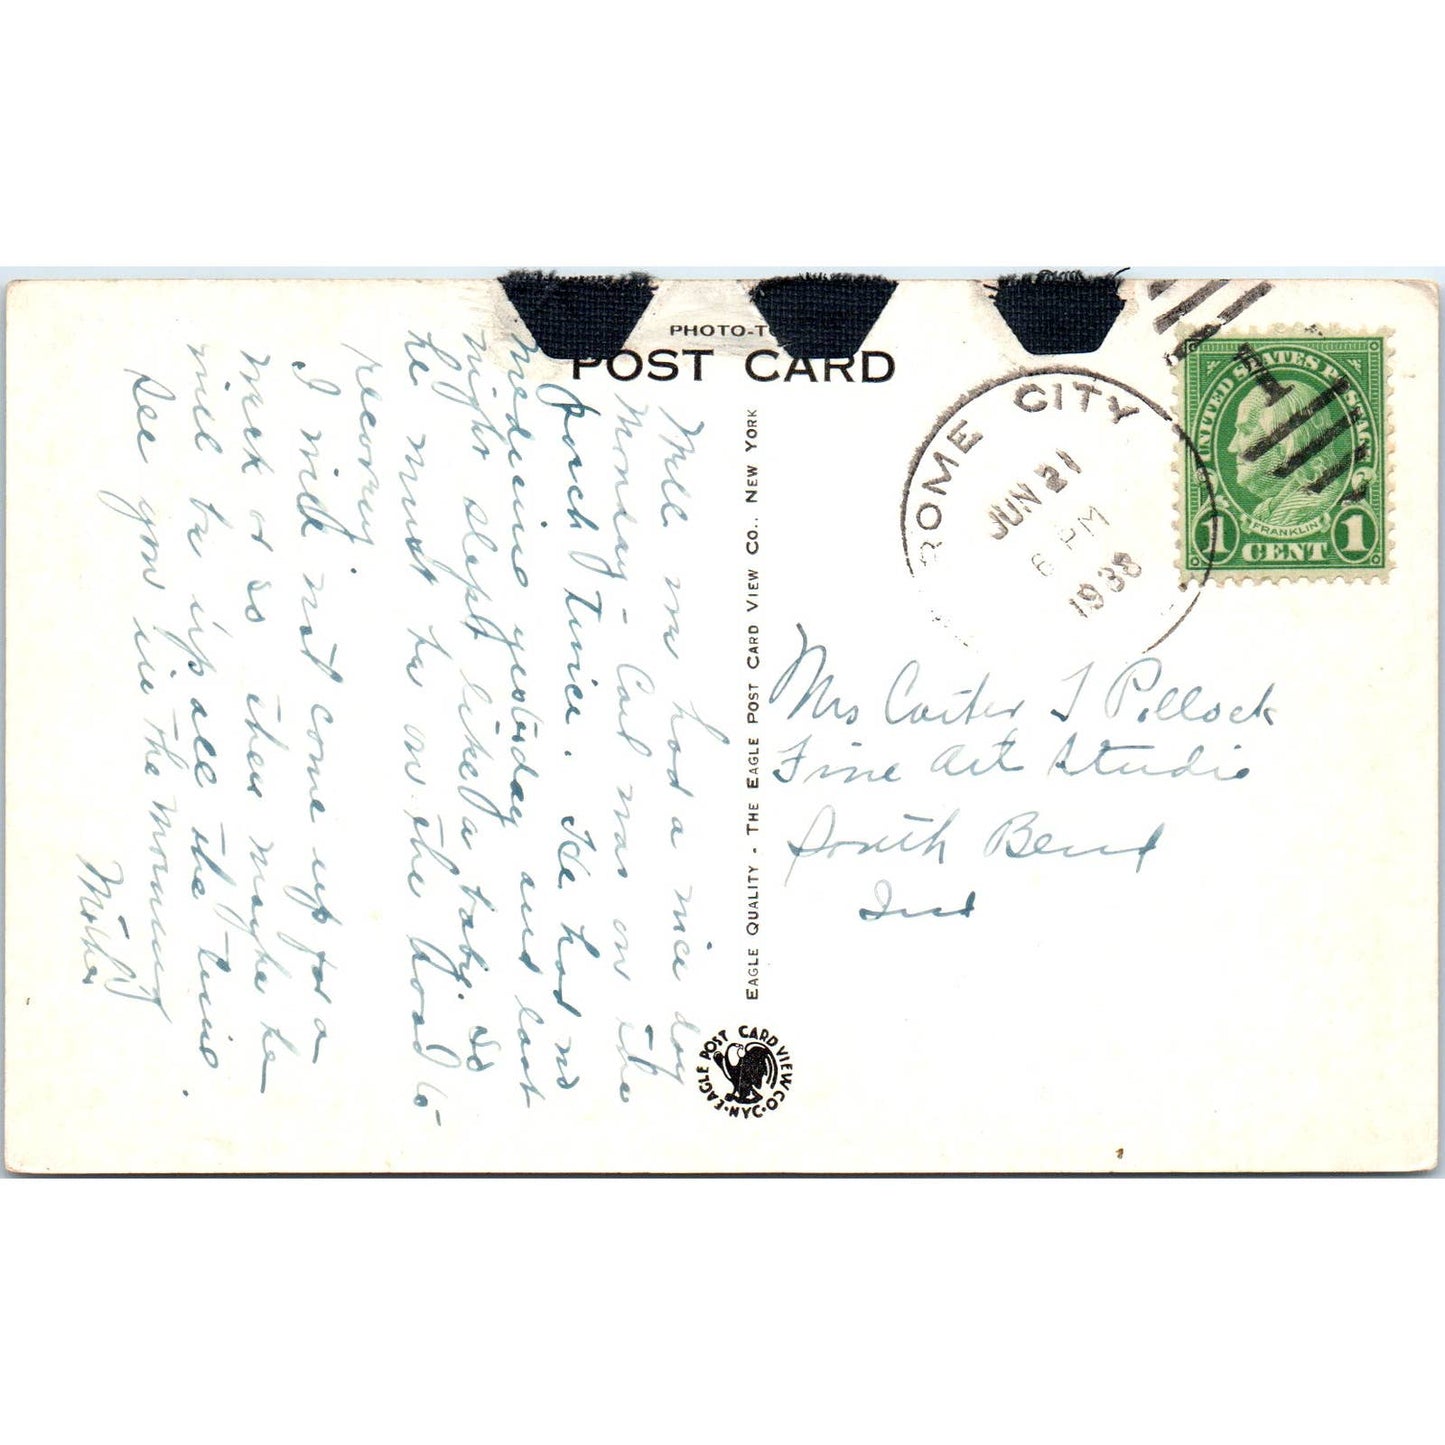 PHOTO-T
POST CARD
Well we had a nice day
Monday - Carl was on the
porch twice. He had no
medicine yesterday and last
night slept like a baby. So
he must be on the road to
recovery
I will not come up for a
week or so then maybe he
will be up all the time.
See you in the morning
Mother
EAGLE QUALITY - THE EAGLE POST CARD VIEW CO., NEW YORK
EAGLE POST CARD VIEW CO. NYC.
ROME CITY
JUN 21
6 PM
1938
UNITED STATES POSTAGE
FRANKLIN
1 CENT 1
Mrs Carter T Pollock
Fine Art Studio
South Bend
Ind